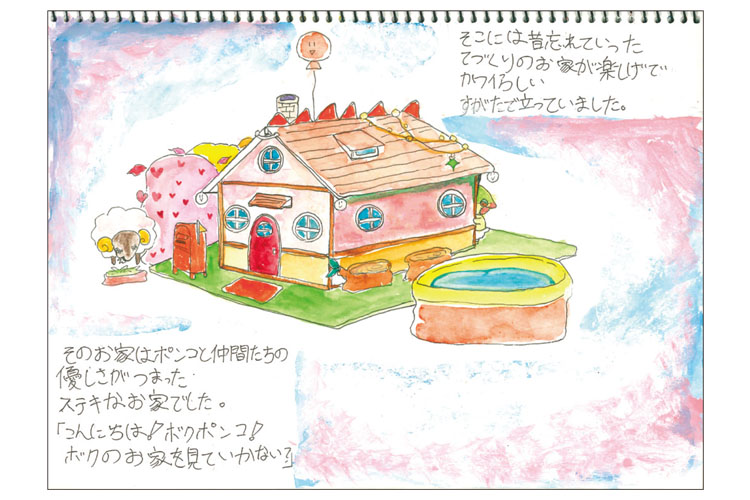 そこには昔忘れていった
てづくりのお家が楽しげで
カワイらしい
すがたで立っていました。
そのお家はポンコと仲間たちの
優しさがつまった
ステキなお家でした。
「こんにちは!ボクポンコ!
ボクのお家を見ていかない?」